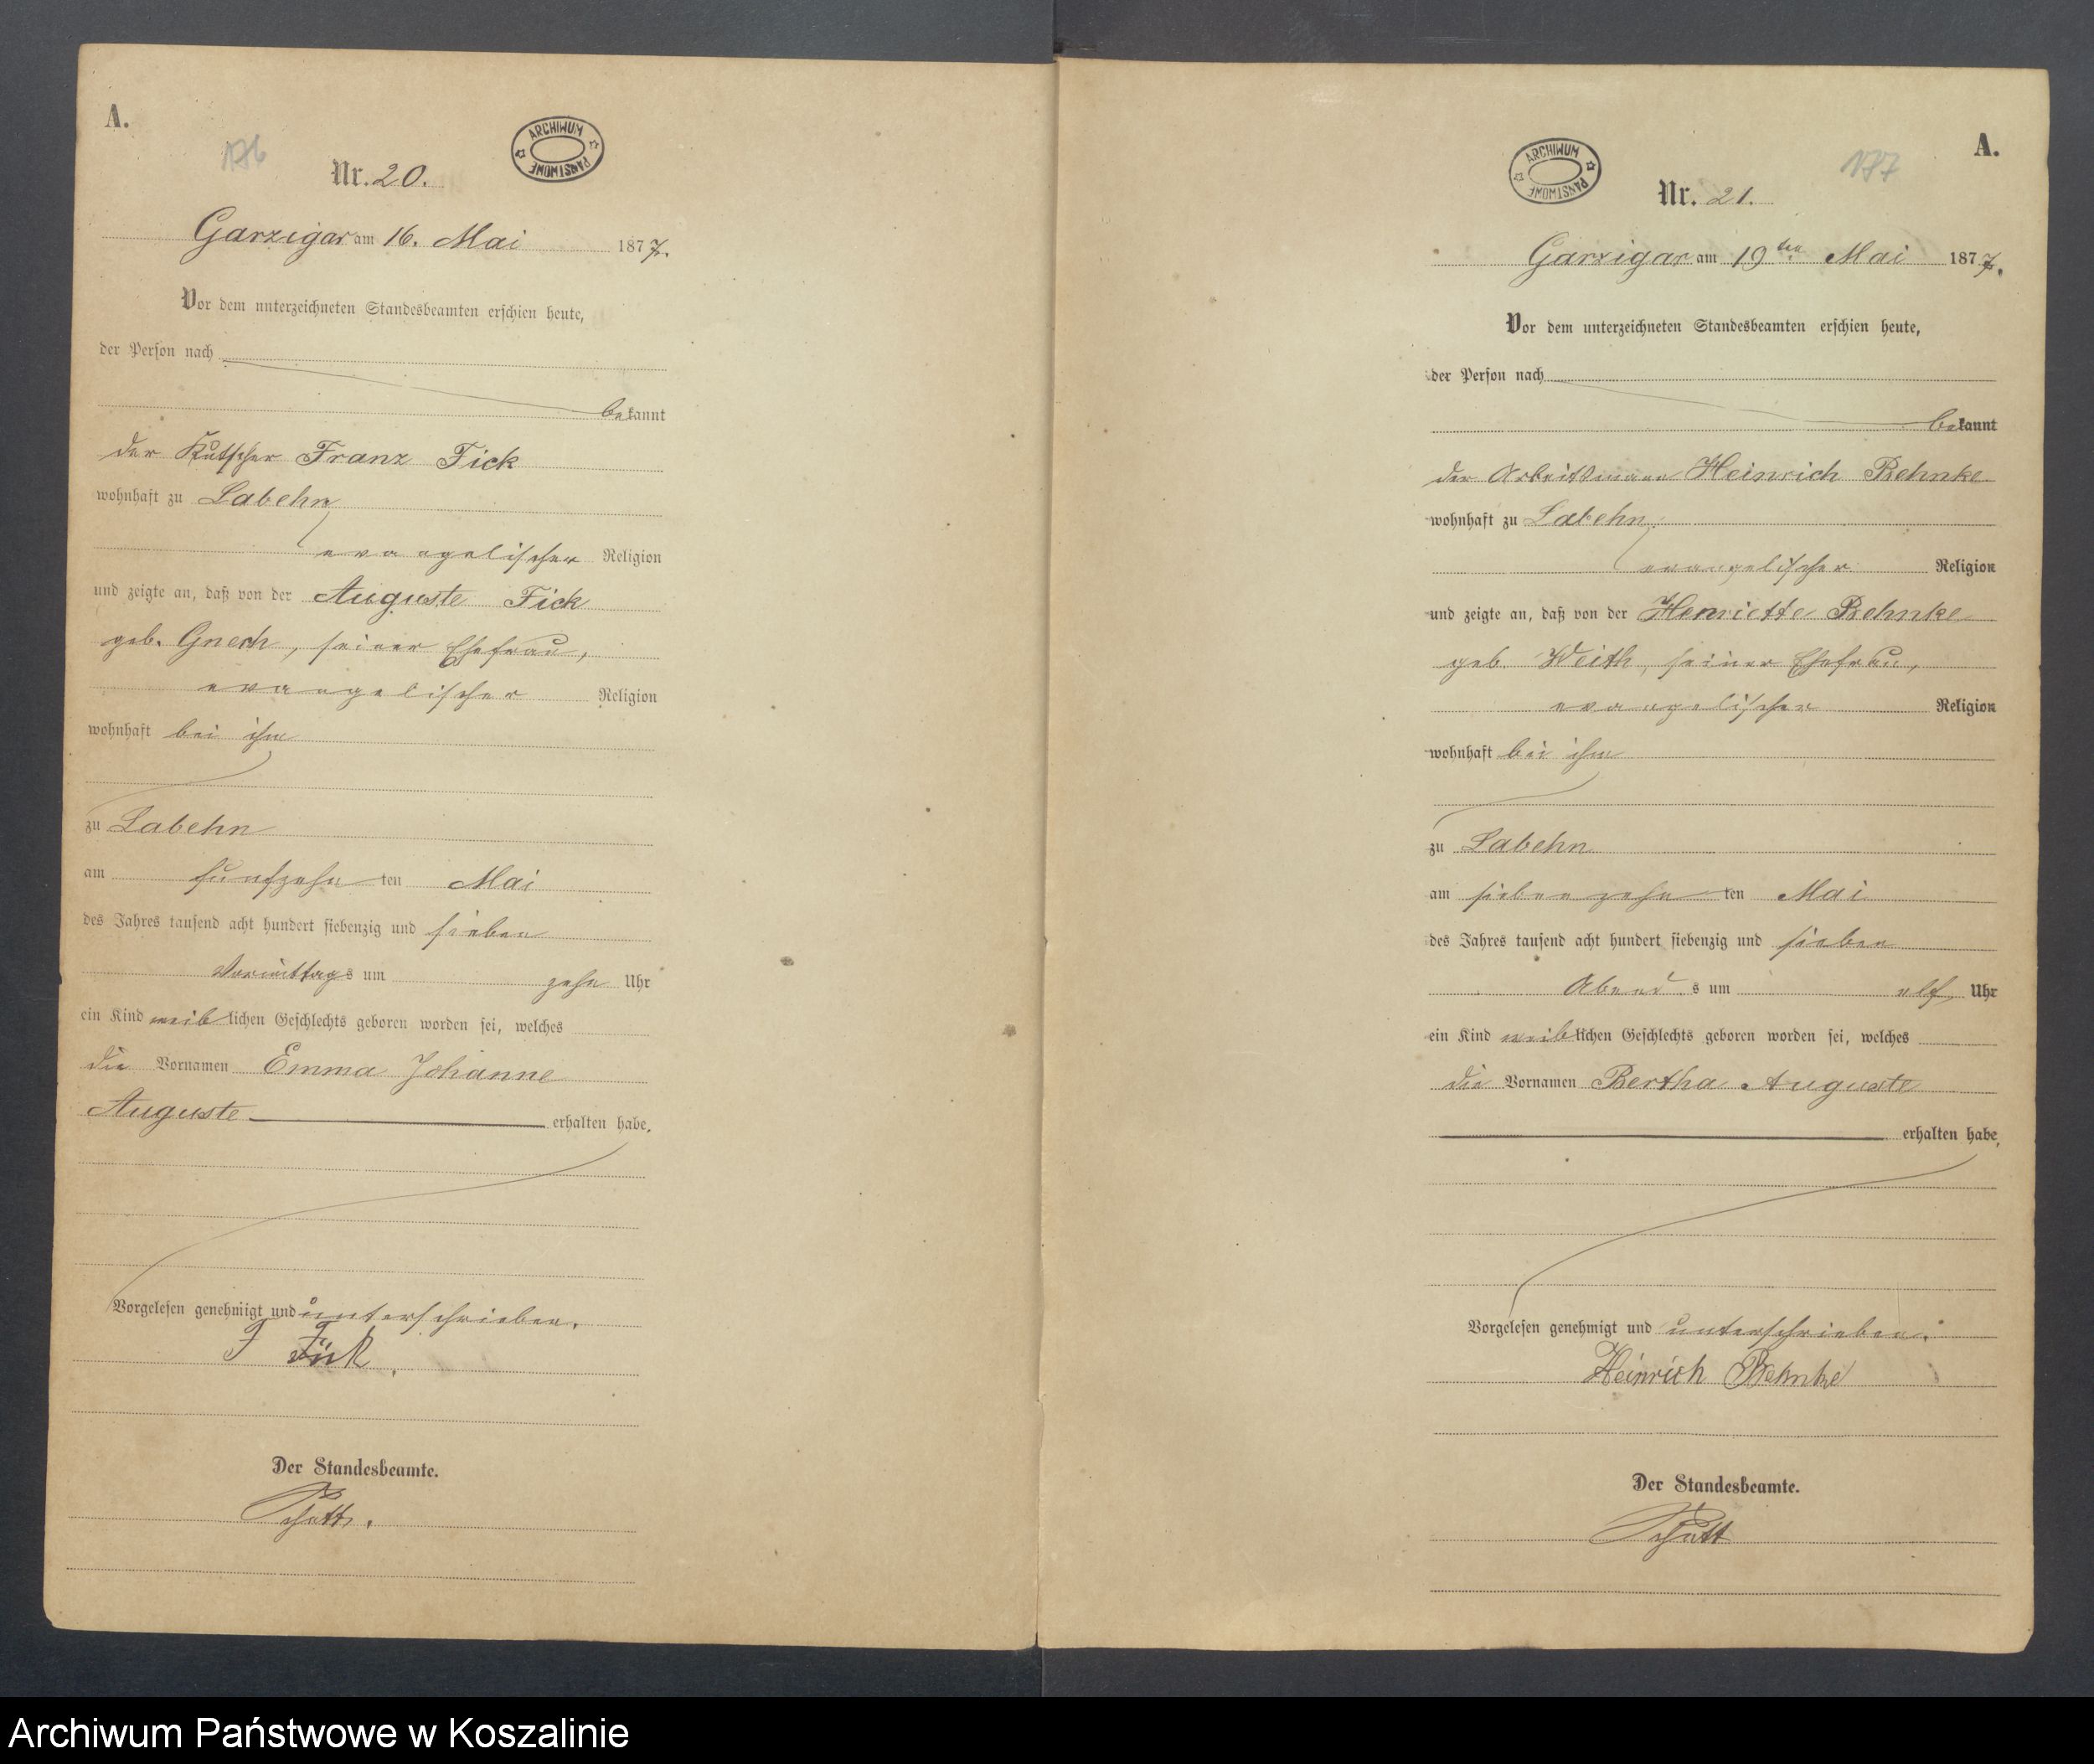 A.
176
Nr. 20.
ARCHIWUM PAŃSTWOWE
Garzigar am 16. Mai 1877.
Vor dem unterzeichneten Standesbeamten erschien heute,
der Person nach
bekannt
der Kutscher Franz Fick
wohnhaft zu Labehn
evangelischer Religion
und zeigte an, daß von der Auguste Fick
geb. Gnech, seiner Ehefrau,
evangelischer Religion
wohnhaft bei ihm
zu Labehn
am funfzehn ten Mai
des Jahres tausend acht hundert siebenzig und sieben
Vormittags um zehn Uhr
ein Kind weiblichen Geschlechts geboren worden sei, welches
die Vornamen Emma Johanne
Auguste erhalten habe.
Vorgelesen genehmigt und unterschrieben.
F Fick.
Der Standesbeamte.
A.
177
ARCHIWUM PAŃSTWOWE
Nr. 21.
Garzigar am 19ten Mai 1877.
Vor dem unterzeichneten Standesbeamten erschien heute,
der Person nach
bekannt
der Arbeitsmann Heinrich Behnke
wohnhaft zu Labehn,
evangelischer Religion
und zeigte an, daß von der Henriette Behnke
geb. Weith, seiner Ehefrau,
evangelischer Religion
wohnhaft bei ihm
zu Labehn
am siebenzehn ten Mai
des Jahres tausend acht hundert siebenzig und sieben
Abends um elf Uhr
ein Kind weiblichen Geschlechts geboren worden sei, welches
die Vornamen Bertha Auguste
erhalten habe.
Vorgelesen genehmigt und unterschrieben.
Heinrich Behnke
Der Standesbeamte.
Archiwum Państwowe w Koszalinie